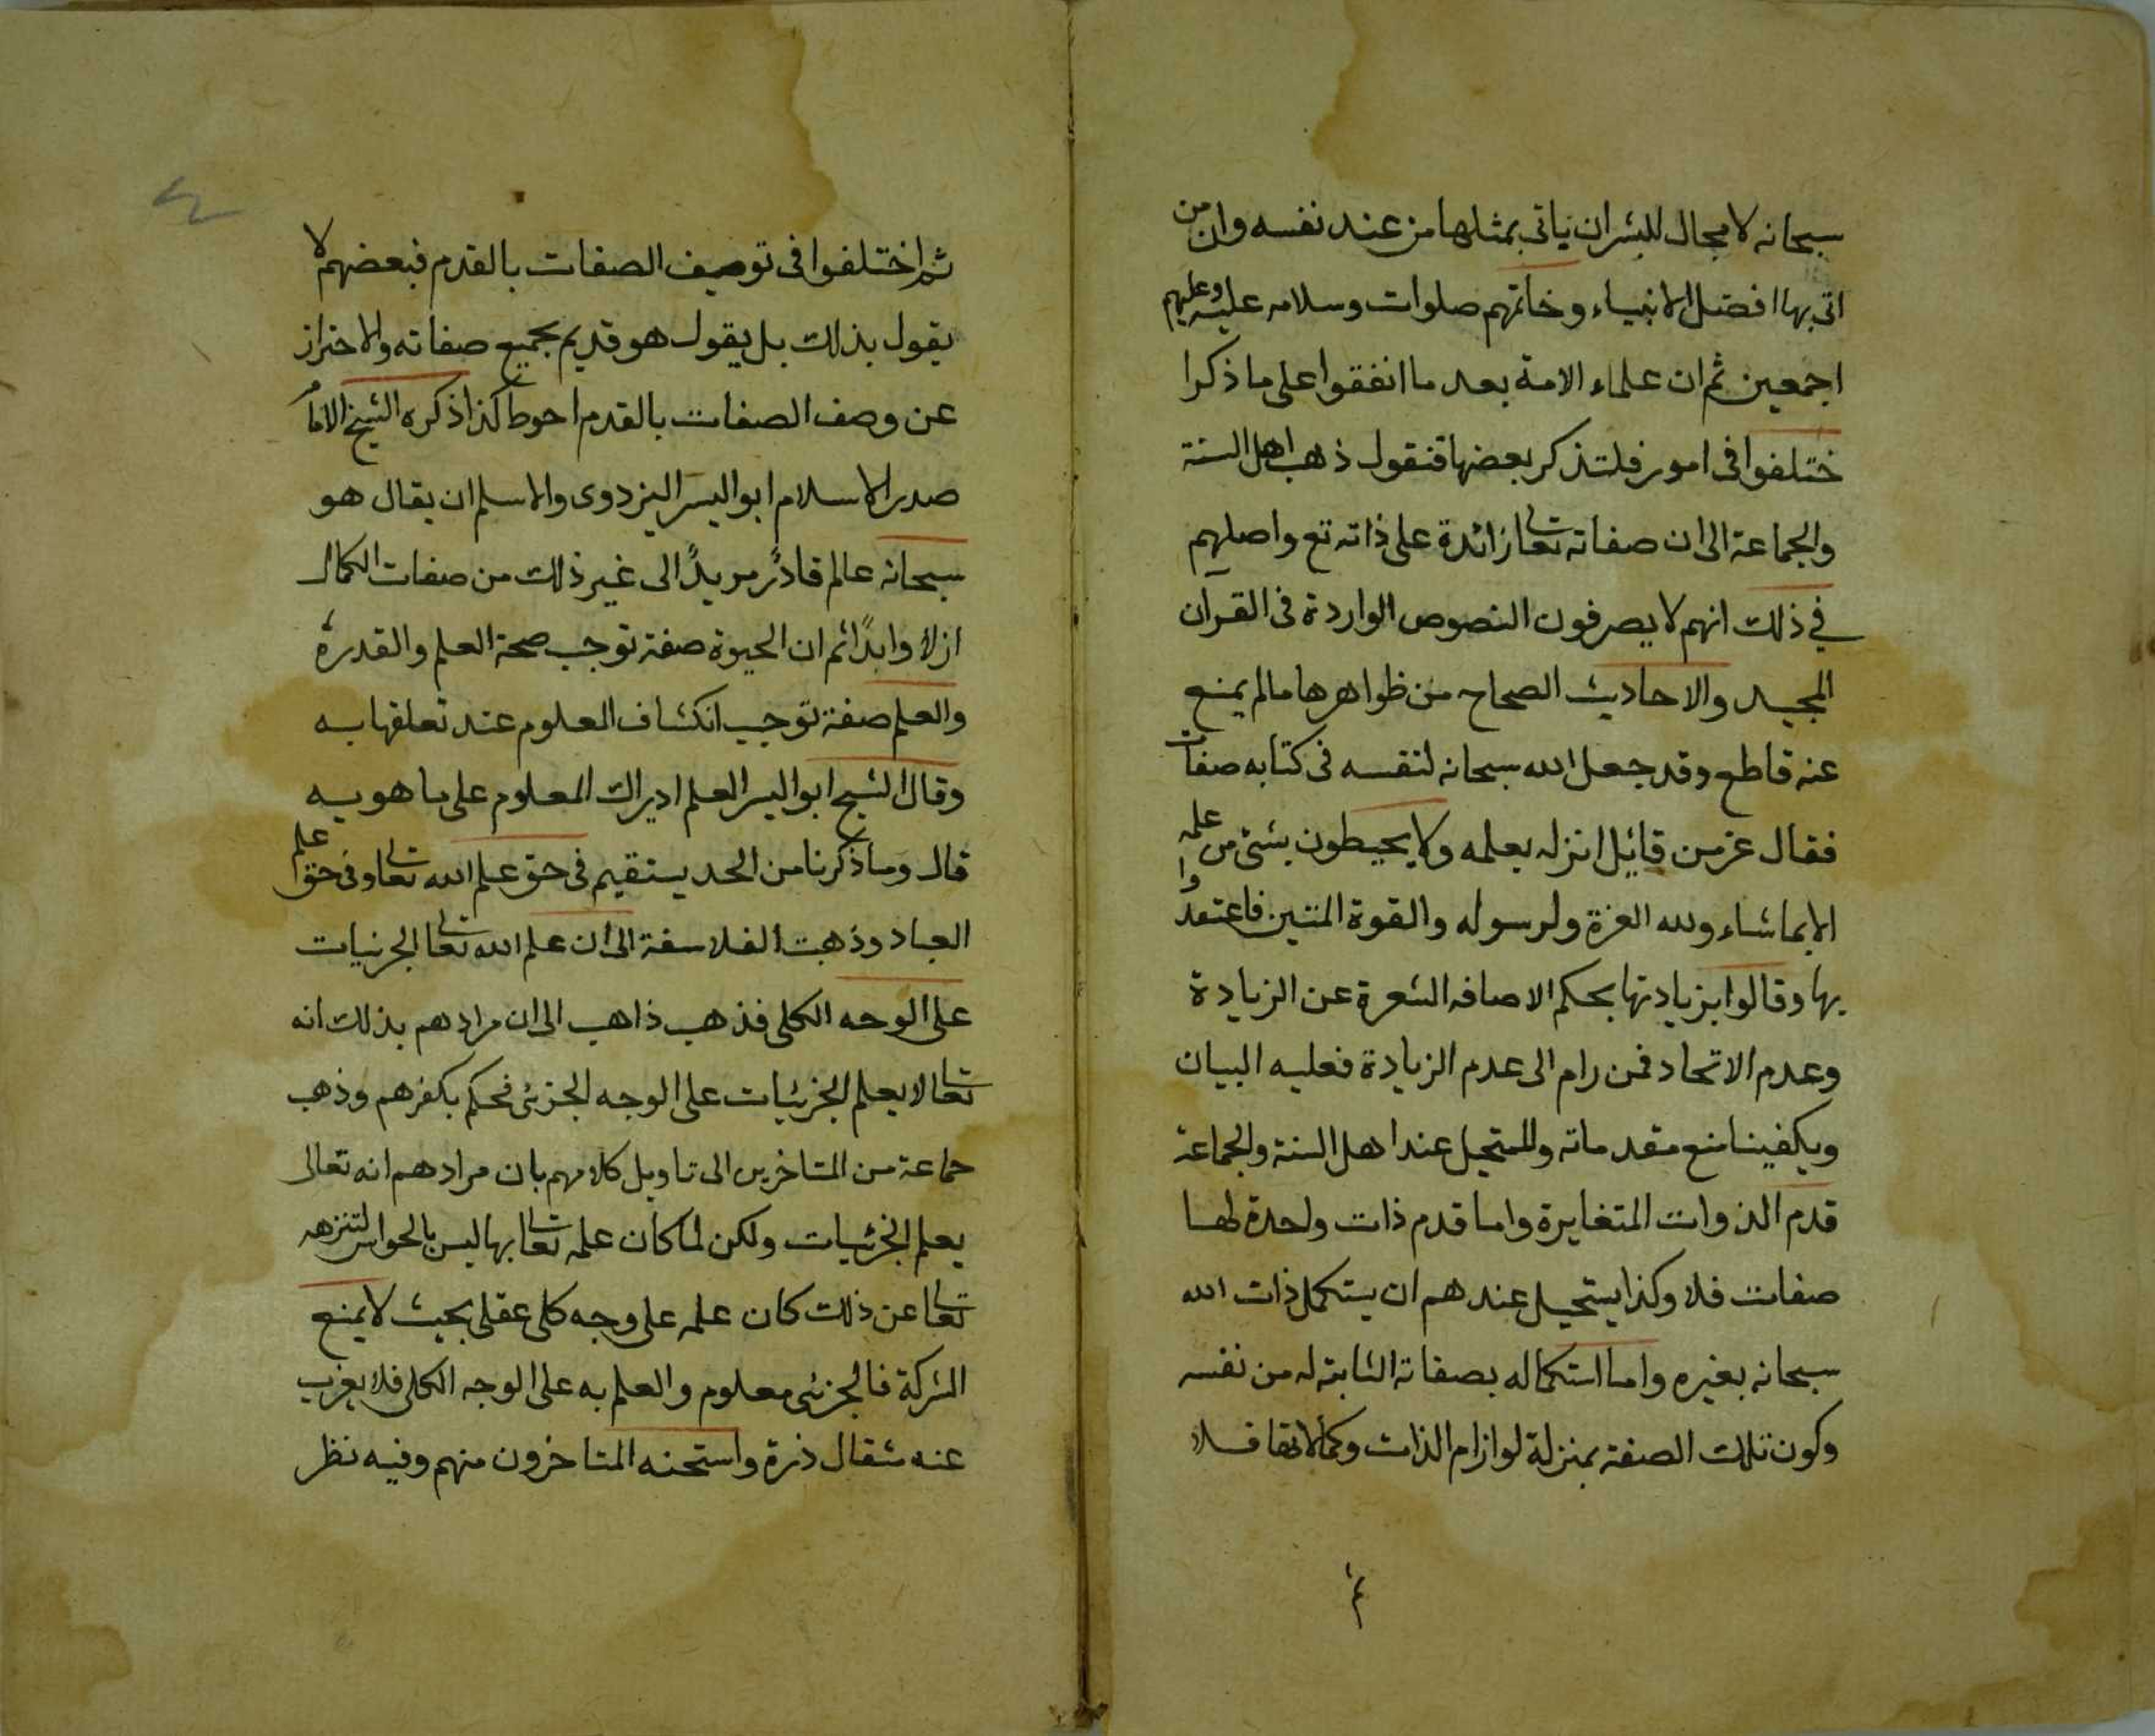 سبحانه لا مجال للبشر ان ياتى بمثلها من عند نفسه وان من
اتى بها افضل الانبياء وخاتمهم صلوات وسلامه عليه وعليهم
اجمعين ثم ان علماء الامة بعد ما اتفقوا على ما ذكرا
ختلفوا فى امور فلتذكر بعضها فنقول ذهب اهل السنة
والجماعة الى ان صفاته تعا زائدة على ذاته تع واصلهم
في ذلك انهم لا يصرفون النصوص الواردة فى القرآن
المجيد والاحاديث الصحاح من ظواهرها مالم يمنع
عنه قاطع وقد جعل الله سبحانه لنفسه فى كتابه صفات
فقال عز من قائيل انزله بعلمه ولا يحيطون بشئ من علمه
الا بما شاء ولله العزة ولرسوله والقوة المتين فاعتقدوا
بها وقالوا بزيادتها بحكم الاضافه الشعرة عن الزيادة
وعدم الاتحاد فمن رام الى عدم الزيادة فعليه البيان
ويكفينا منع مقدماته وللستحيل عند اهل السنة والجماعة
قدم الذوات المتغايرة واما قدم ذات واحدة لها
صفات فلا وكذا يستحيل عندهم ان يستكمل ذات الله
سبحانه بغيره واما استكماله بصفاته الثابتة له من نفسه
وكون تلك الصفة بمنزلة لوازام الذات وكمالاتها فلا
٤
ثم اختلفوا فى توصيف الصفات بالقدم فبعضهم لا
يقول بذلك بل يقول هو قديم بجميع صفاته والاحتراز
عن وصف الصفات بالقدم احوط كذا ذكره الشيخ الامام
صدر الاسلام ابو اليسر البزدوى والاسلم ان يقال هو
سبحانه عالم قادرٌ مريدٌ الى غير ذلك من صفات الكمال
ازلا وابدًا ثم ان الحيوة صفة توجب صحة العلم والقدرة
والعلم صفة توجب انكشاف العلوم عند تعلقها به
وقال الشيخ ابو اليسر العلم ادراك المعلوم على ما هو به
قال وما ذكرنا من الحد يستقيم فى حق علم الله تعا وفى حق علم
العباد وذهبت الفلاسفة الى ان علم الله تعا الجزئيات
على الوجه الكلى فذهب ذاهب الى ان مرادهم بذلك انه
تعا لا يعلم الجزئيات على الوجه الجزئى فحكم بكفرهم وذهب
جماعة من المتاخرين الى تاويل كلامهم بان مرادهم انه تعالى
يعلم الجزئيات ولكن لما كان علمه تعا بها ليس بالحواس لتنزهه
تعا عن ذلك كان علمه على وجه كلى عقلى بحيث لا يمنع
الشركة فالجزئى معلوم والعلم به على الوجه الكلى فلا يعزب
عنه مثقال ذرة واستحنه المتاخرون منهم وفيه نظر